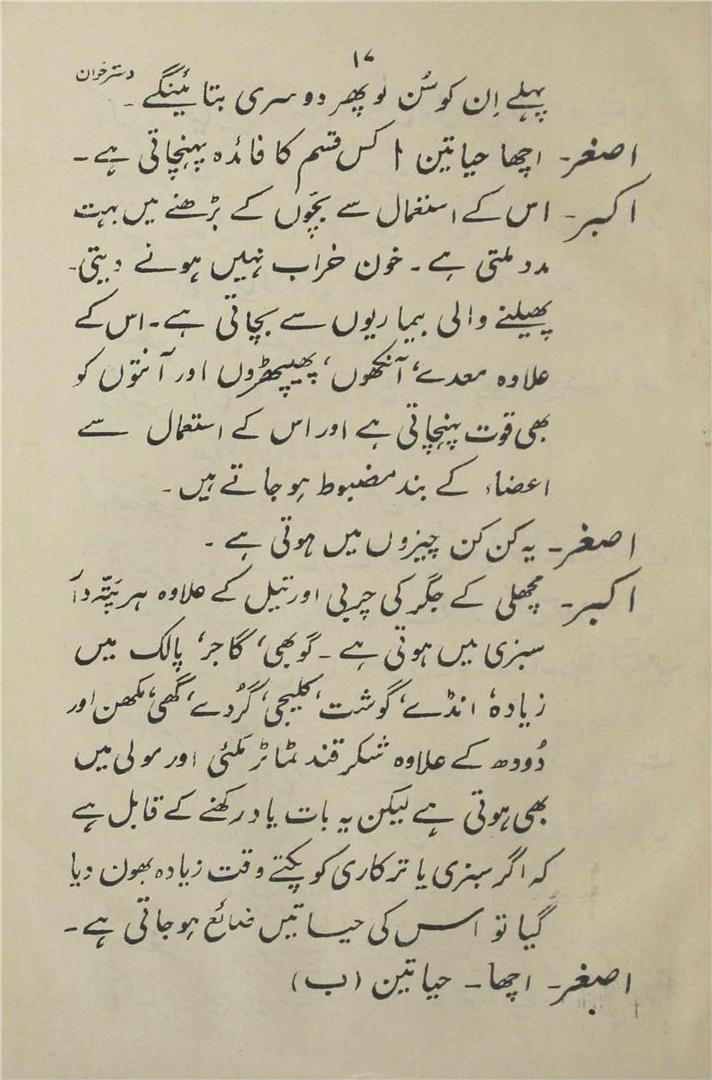 ۱۷
دسترخوان
پہلے اِن کو سُن لو پھر دوسری بتائینگے ۔
اصغر۔ اچھا حیاتین ا کس قسم کا فائدہ پہنچاتی ہے۔
اکبر۔ اس کے استعمال سے بچّوں کے بڑھنے میں بہت
مدد ملتی ہے ۔ خون خراب نہیں ہونے دیتی۔
پھیلنے والی بیماریوں سے بچاتی ہے۔ اس کے
علاوہ معدے، آنکھوں، پھیپھڑوں اور آنتوں کو
بھی قوت پہنچاتی ہے اور اس کے استعمال سے
اعضاء کے بند مضبوط ہو جاتے ہیں ۔
اصغر۔ یہ کن کن چیزوں میں ہوتی ہے ۔
اکبر۔ مچھلی کے جگر کی چربی اور تیل کے علاوہ ہر پتّہ دار
سبزی میں ہوتی ہے ۔ گوبھی، گاجر، پالک میں
زیادہ، انڈے، گوشت، کلیجی، گُردے، گھی، مکھن اور
دُودھ کے علاوہ شکر قند ٹماٹر مکئی اور مولی میں
بھی ہوتی ہے لیکن یہ بات یاد رکھنے کے قابل ہے
کہ اگر سبزی یا ترکاری کو پکتے وقت زیادہ بھون دیا
گیا تو اس کی حیاتیں ضائع ہو جاتی ہے ۔
اصغر۔ اچھا۔ حیاتین (ب)